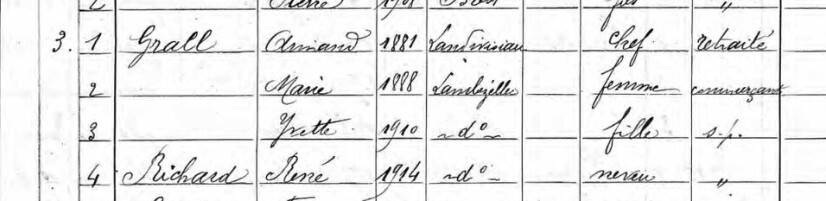 2 Pierre 1908 Brest fils "
3. 1 Grall Armand 1881 Landivisiau chef retraité
2 Marie 1888 Lambézellec femme commerçante
3 Yvette 1910 ~dº~ fille s.p.
4 Richard René 1914 ~dº~ neveu "